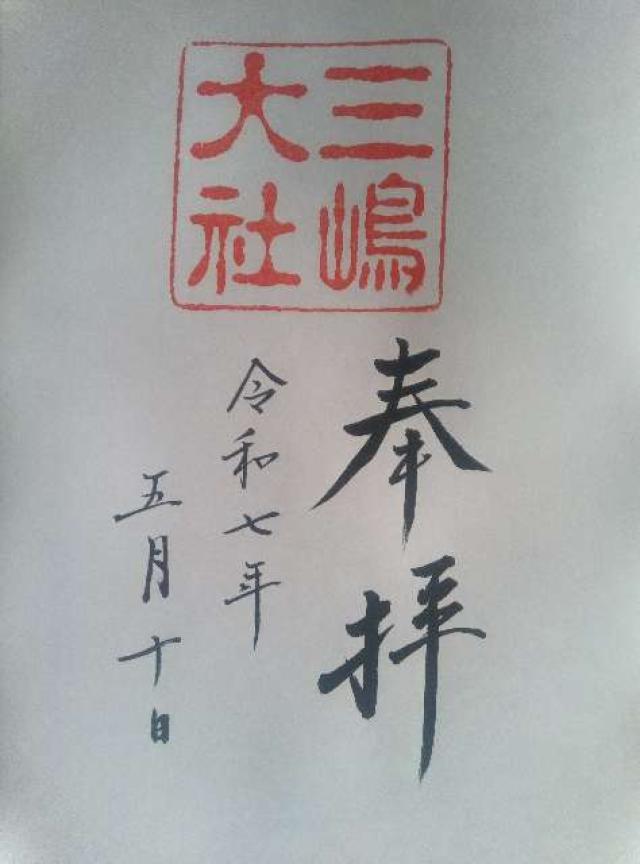 三嶋
大社
奉拝
令和七年
五月十日